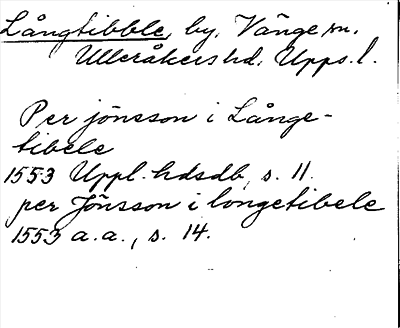 Långtibble, by, Vänge sn.
Ulleråkers hd. Upps. l.
Per jönsson i Långe-
tibele
1553 Uppl. hdsdb, s. 11.
per Jönsson i longetibele
1553 a.a., s. 14.